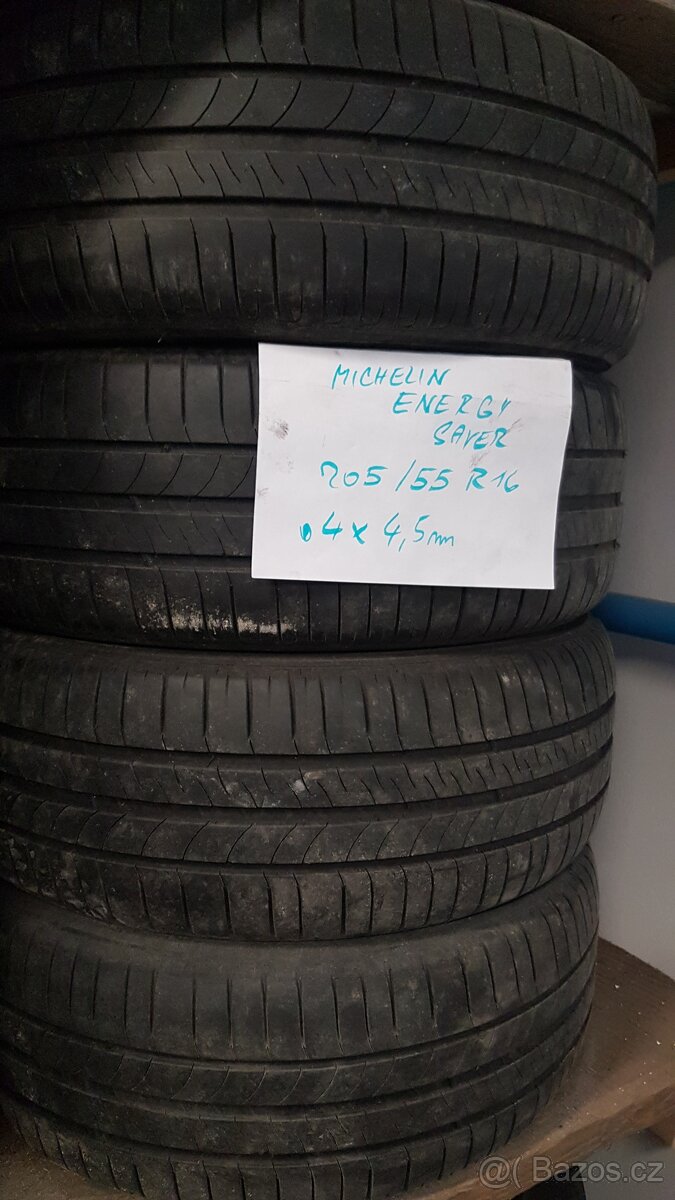 MICHELIN
ENERGY
SAVER
205/55 R16
.4x 4,5mm
@( Bazos.cz